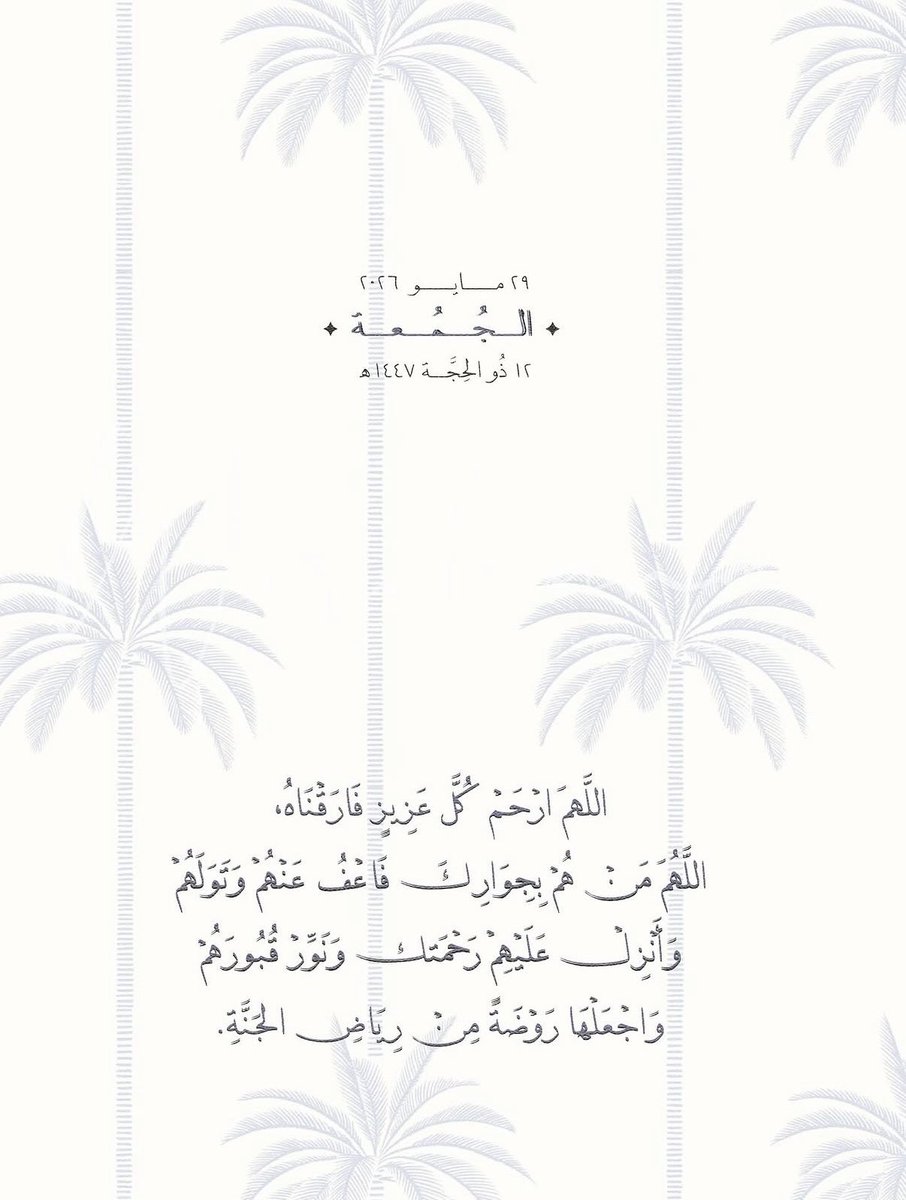 ٢٩ مـايـو ٢٠٢٦
✦ الـجُـمُـعـة ✦
١٢ ذُو الحِجَّـة ١٤٤٧هـ
اللَّهمَ ارْحَمْ كُلَّ عَزِيزٍ فَارَقْنَاهُ،
اللَّهُمَ مَنْ هُمْ بِجِوَارِكَ فَاعْفُ عَنْهُمْ وَتَوَلَهُمْ
وَأَنْزِلْ عَلَيْهِمْ رَحْمَتك وَنَوِّرْ قُبُورَهُمْ
وَاجْعَلْهَا رَوْضَةً مِنْ رِيَاضِ الجَنَّةِ.